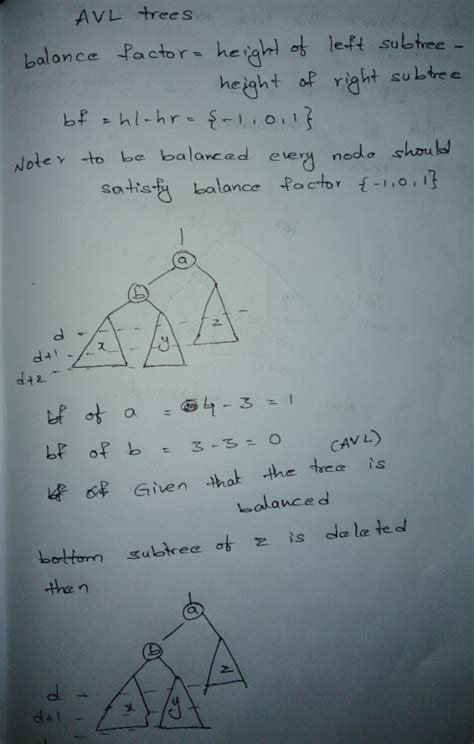 AVL trees
balance factor = height of left subtree -
height of right subtree
bf = hl-hr = {-1, 0, 1}
Note:- to be balanced every node should
satisfy balance factor {-1, 0, 1}
a
b
z
d
x
y
d+1
d+2
bf of a = 4 - 3 = 1
bf of b = 3 - 3 = 0 (AVL)
Given that the tree is
balanced
bottom subtree of z is deleted
then
a
b
z
d
x
y
d+1